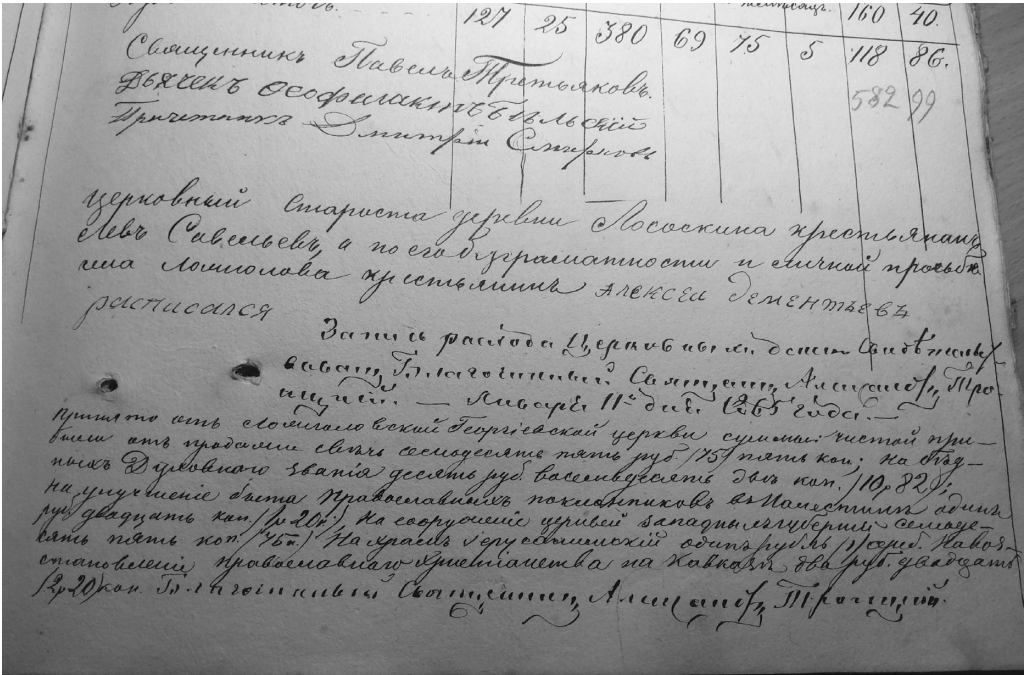 127 25 380 69 75 5 160 40.
118 86.
Священникъ Павелъ Третьяковъ.
582 99
Дьячекъ Ѳеофилактъ Бѣльскій
Причетникъ Дмитрій Смирновъ
Церковный староста деревни Лососкина крестьянинъ
Левъ Савельевъ, а по его безграмотности и личной прозьбѣ
села Ломполова крестьянинъ Алексеи Дементьевъ
расписался
Запись расхода Церковныхъ денегъ свидѣтель-
ствовалъ Благочинный Священникъ Александръ Тро-
ицкій. — Января 11го дня 1865 года. —
Принято отъ Ломполовской Георгіевской церкви суммы: чистой при-
были отъ продажи свѣчъ семьдесятъ пять руб. /75/ пять коп; на бѣд-
ныхъ Духовнаго званія десять руб. восемьдесятъ двѣ коп. /10р 82/;
на улучшеніе быта православныхъ поклонниковъ въ Палестинѣ одинъ
руб. двадцать коп. /1р 20к/, на сооруженіе церквей западныхъ губерній семьде-
сять пять коп. /75к./ На храмъ Іерусалимскій одинъ рубль /1/ сереб. На воз-
становленіе православнаго христіанства на Кавказѣ два руб. двадцать
/2р 20/ коп. Благочинный Священникъ Александръ Троицкій.